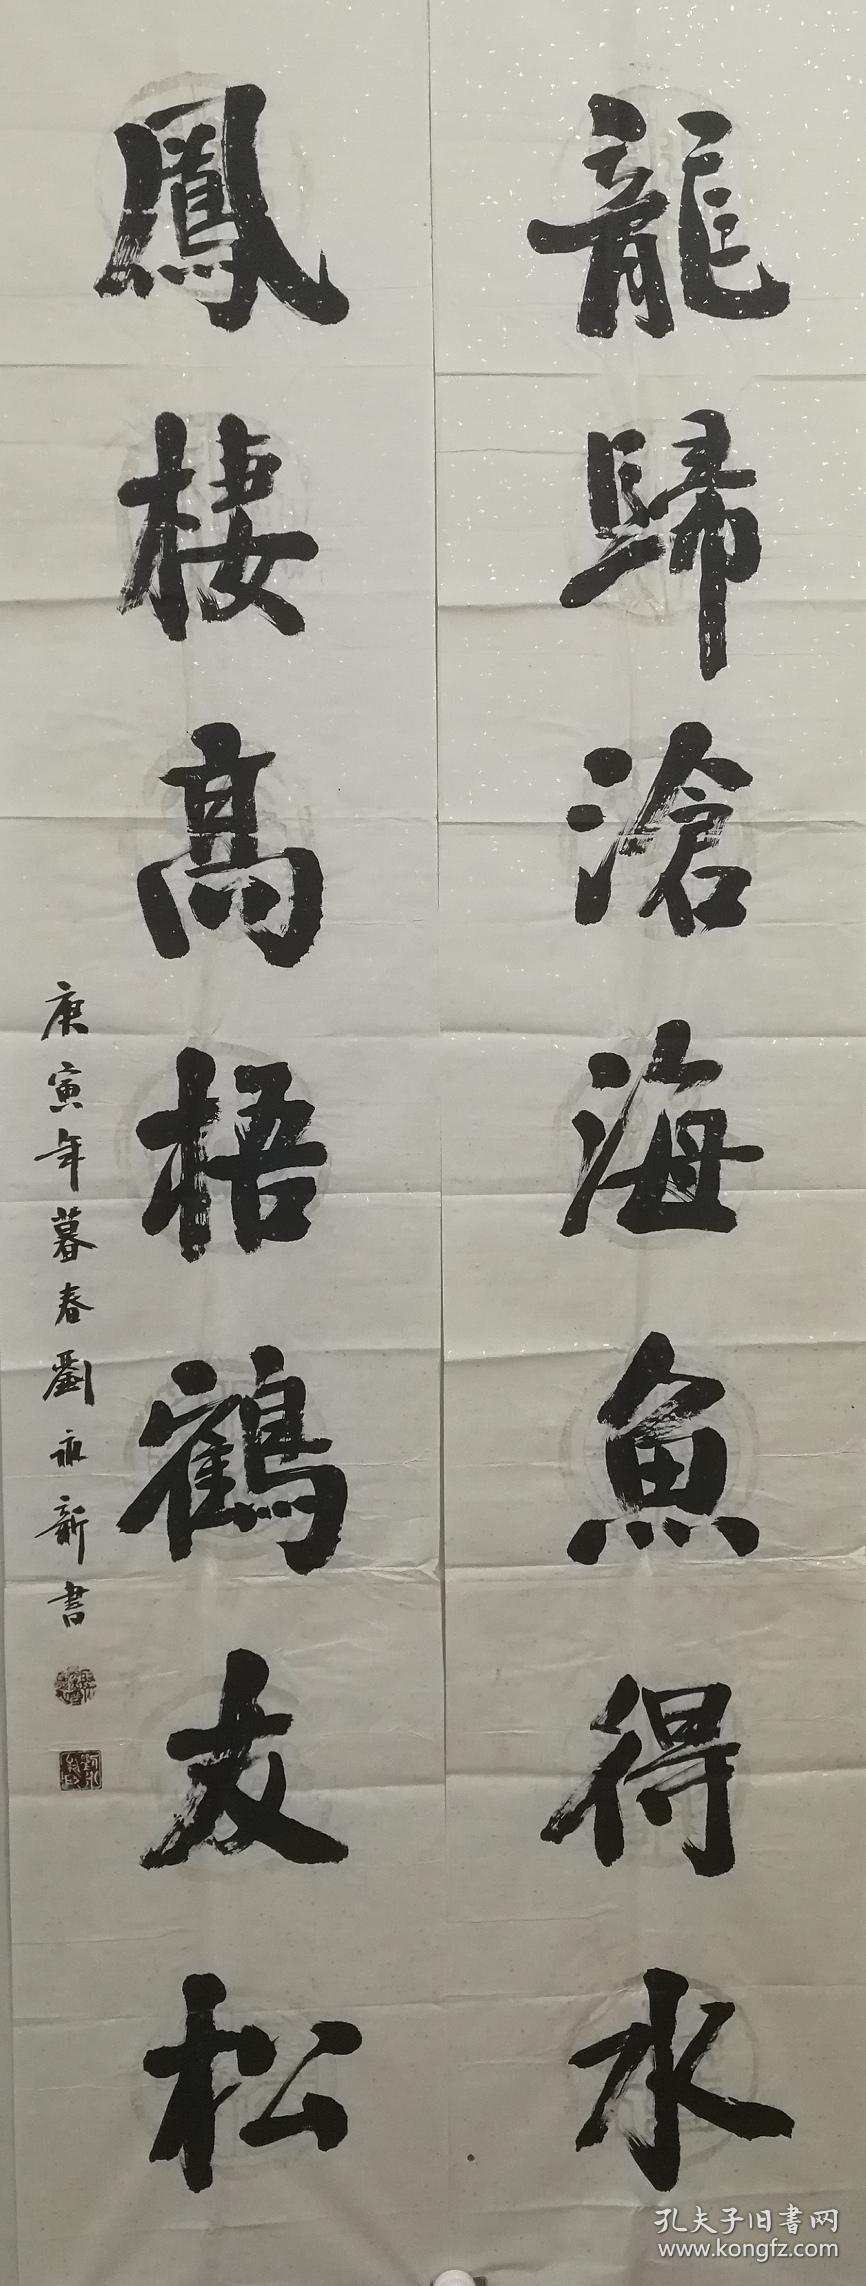 龍歸滄海魚得水
鳳棲高梧鶴友松
庚寅年暮春劉永新書
孔夫子旧書网
www.kongfz.com